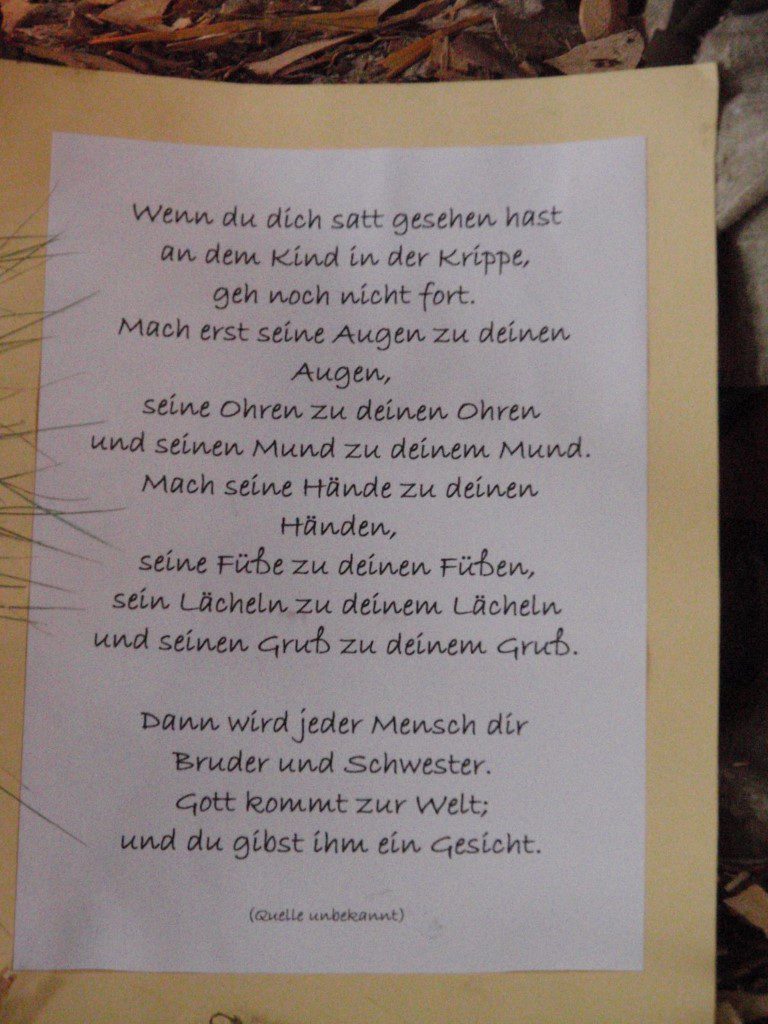 Wenn du dich satt gesehen hast
an dem Kind in der Krippe,
geh noch nicht fort.
Mach erst seine Augen zu deinen
Augen,
seine Ohren zu deinen Ohren
und seinen Mund zu deinem Mund.
Mach seine Hände zu deinen
Händen,
seine Füße zu deinen Füßen,
sein Lächeln zu deinem Lächeln
und seinen Gruß zu deinem Gruß.
Dann wird jeder Mensch dir
Bruder und Schwester.
Gott kommt zur Welt;
und du gibst ihm ein Gesicht.
(Quelle unbekannt)